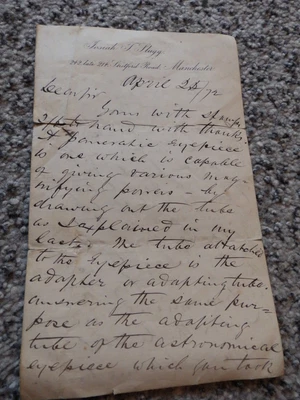 Josiah T. Slugg
212, late 214, Stretford Road, Manchester
April 24/72
Dear Sir
Yours with stamps
to hand with thanks.
A Pancratic Eyepiece
is one which is capable
of giving various mag-
nifying powers - by
drawing out the tubes
as I explained in my
last. The tube attached
to the Eyepiece is the
adapter or adapting tube.
answering the same pur=
pose as the adapting
tube of the astronomical
eyepiece which you took